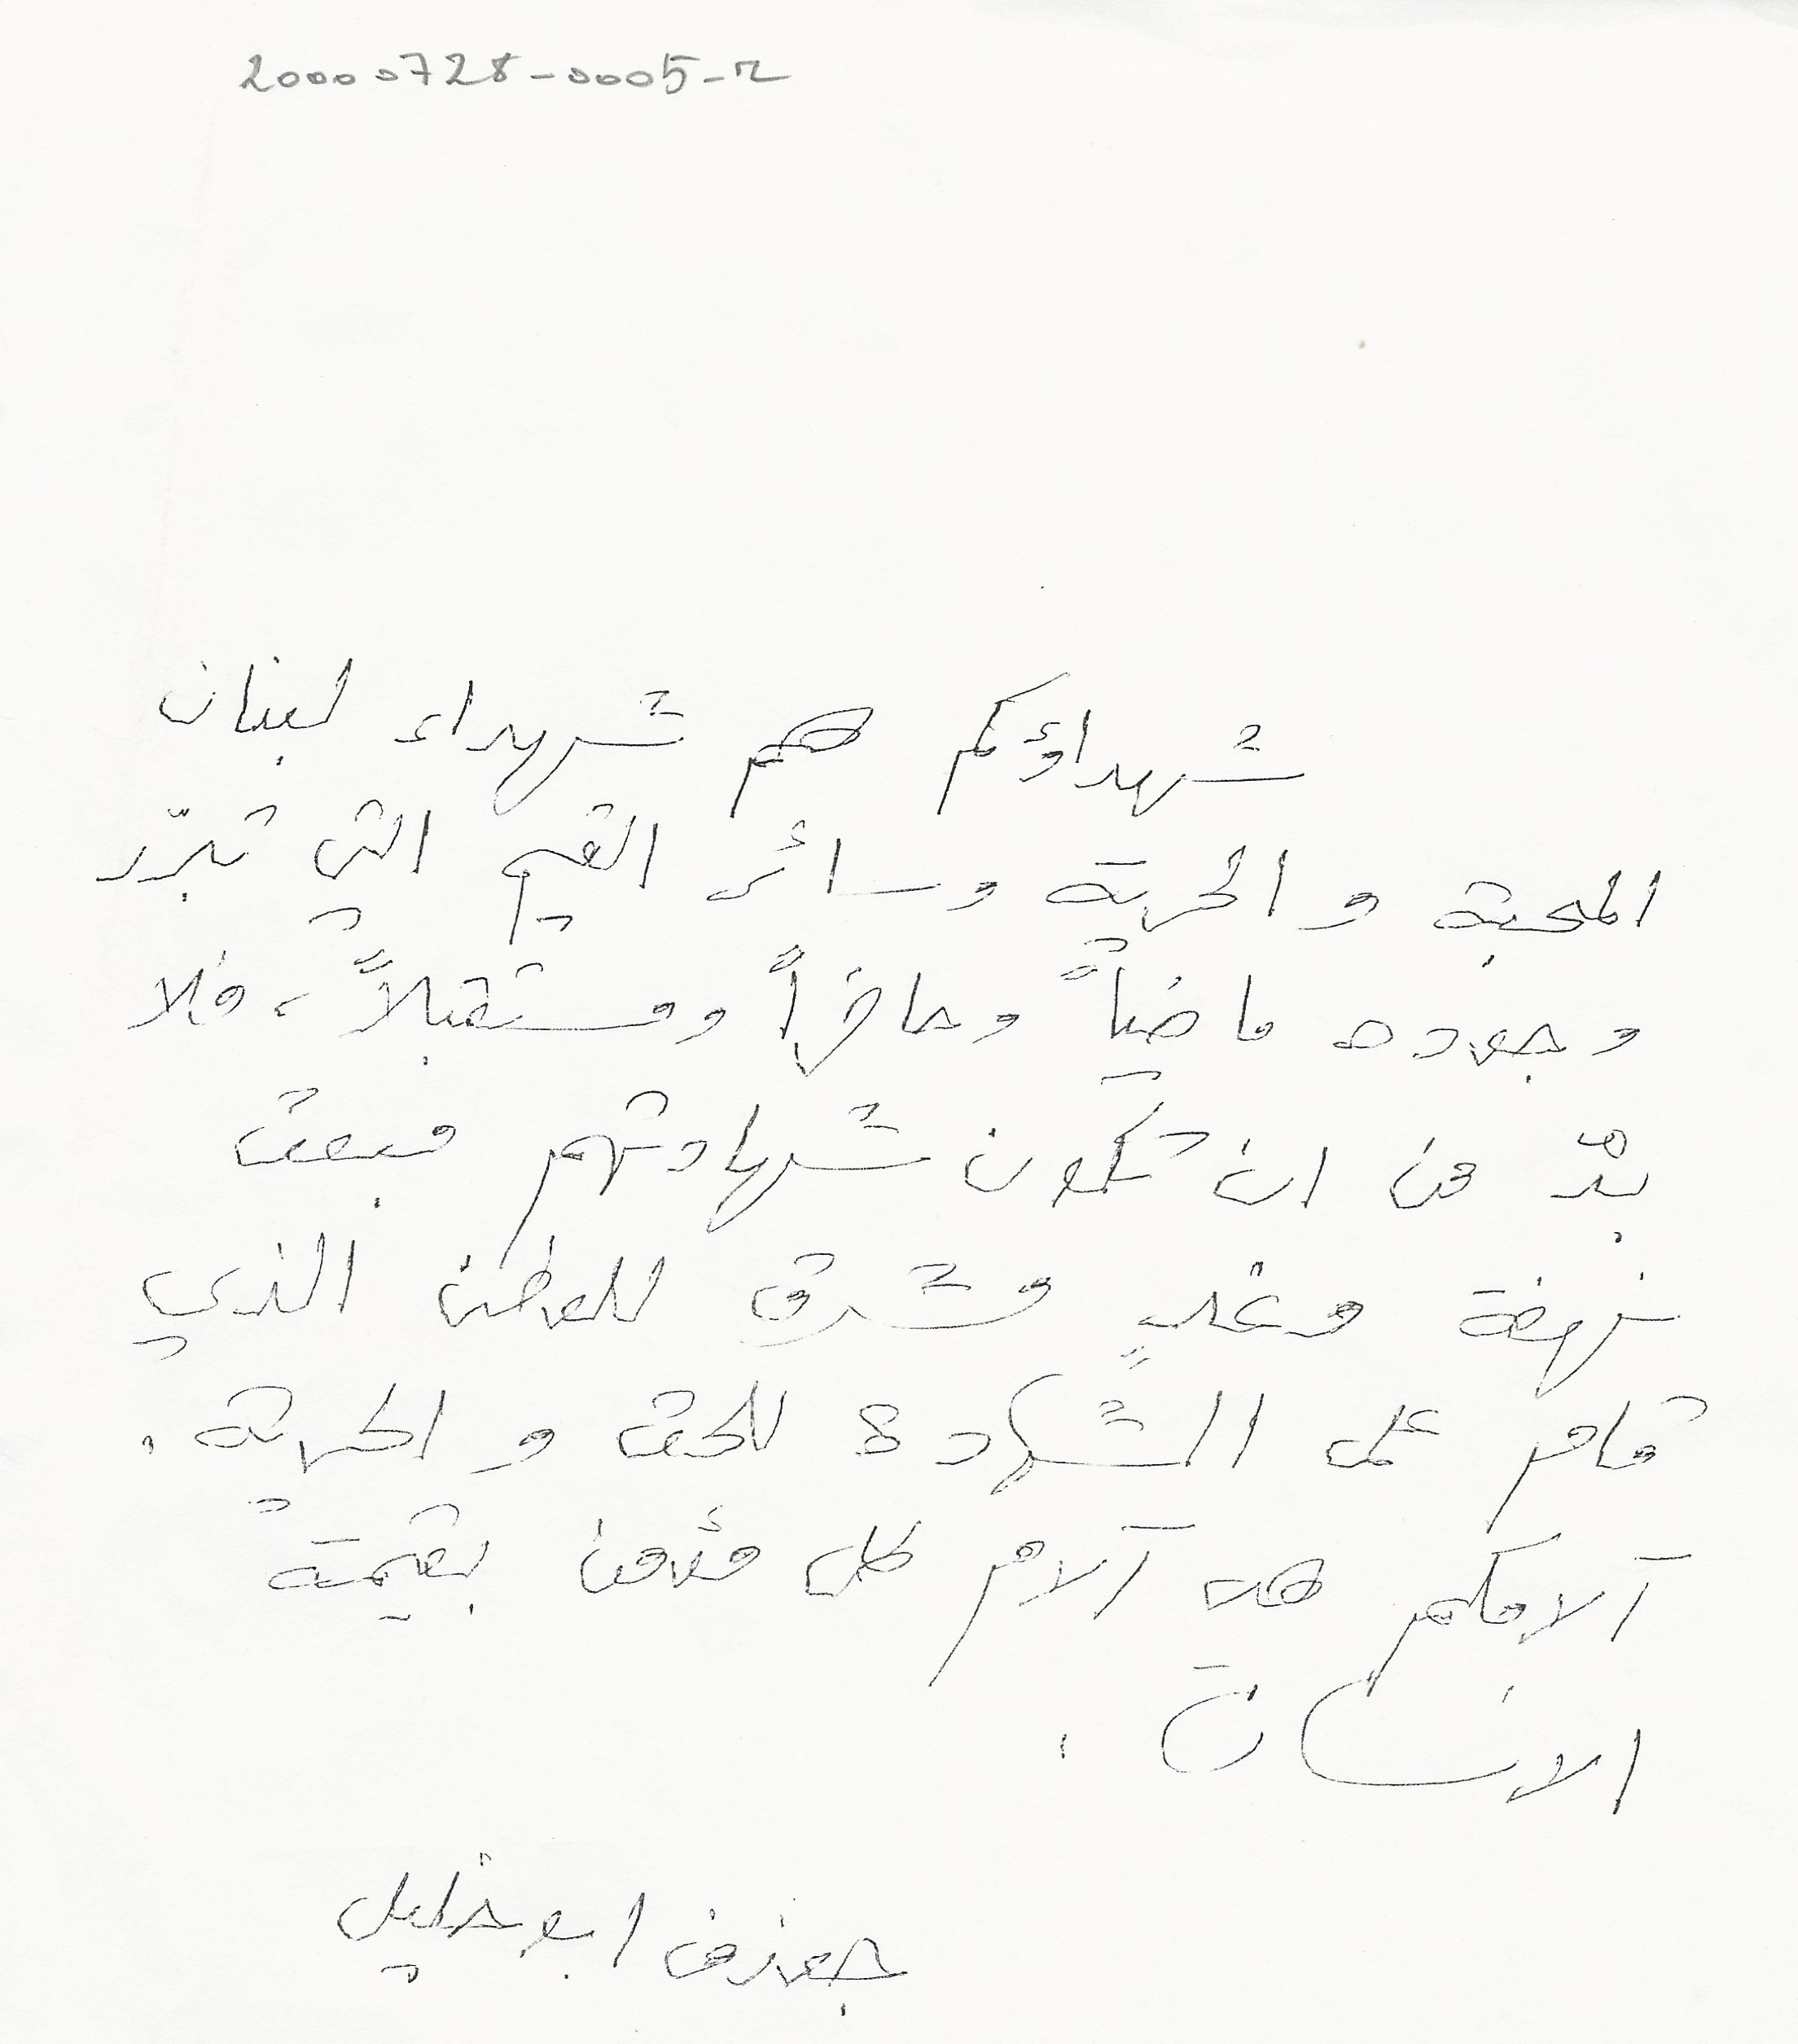 20000728-0005-r
شهداؤكم هم شهداء لبنان
المحبة والحرية وسائر القيم التي تبرّر
وجوده ماضياً وحاضراً ومستقبلاً، فلا
بدّ من ان تكون شهادتهم مبعث
نهضة وغدٍ مشرق للوطن الذي
قام على الشهادة للحق والحرية.
آلامكم هي آلام كل مؤمن بقيمة
الانسان.
جوزف ابو خليل